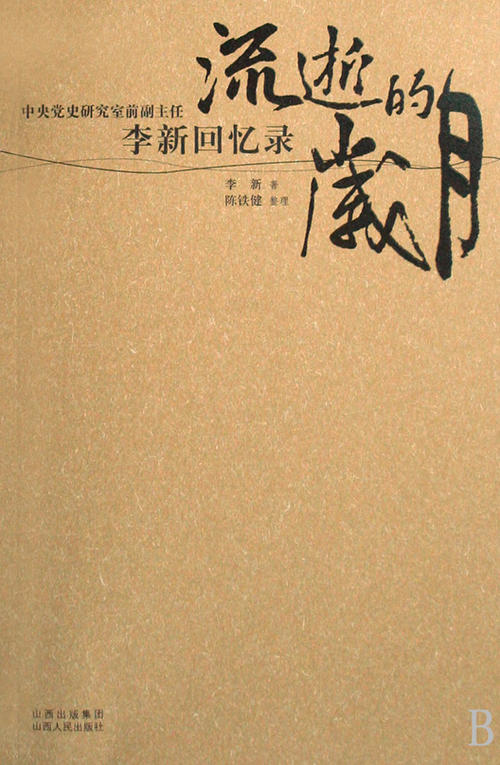 流逝的
歲月
中央党史研究室前副主任
李新回忆录
李 新 著
陈铁健 整理
山西出版集团
山西人民出版社
B